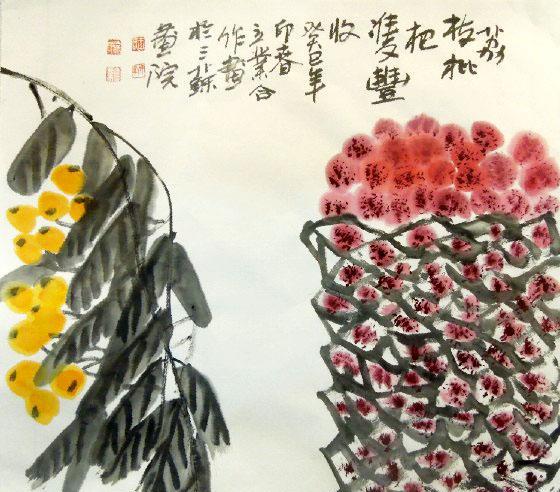 荔
枝枇
杷
雙豐
收
癸巳年
印春
立業合
作畫
於三蘇
畫院